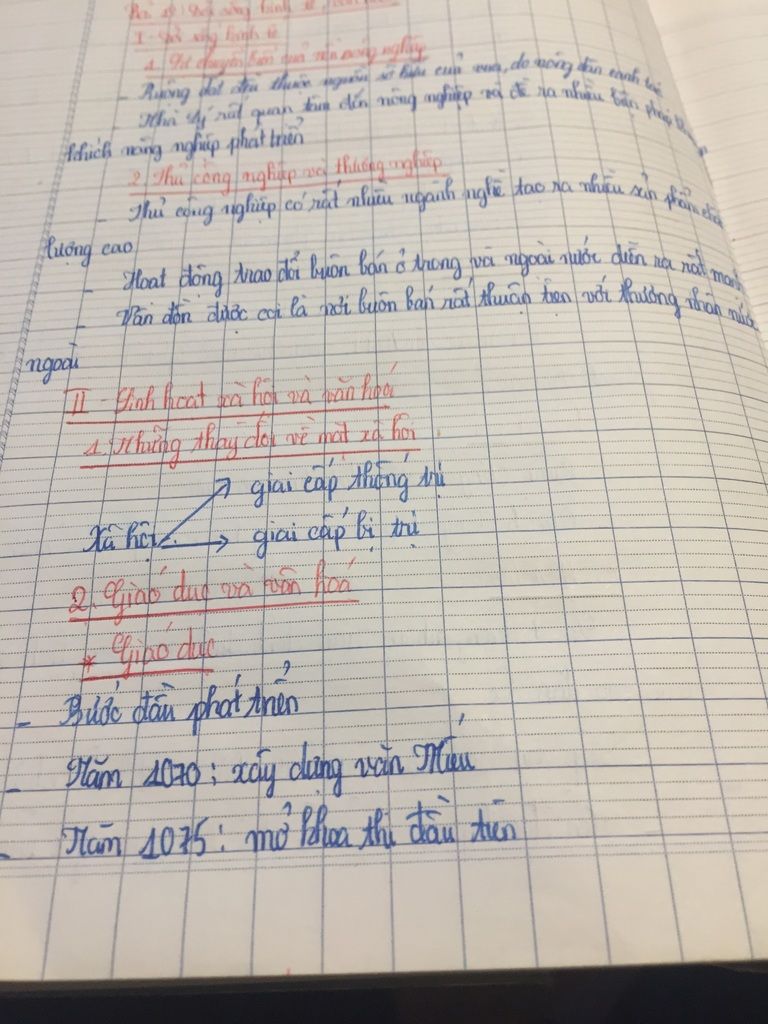 I - Đời sống kinh tế
1. Sự chuyển biến của nền nông nghiệp
- Ruộng đất đều thuộc quyền sở hữu của vua, do nông dân canh tác
- Nhà Lý rất quan tâm đến nông nghiệp và đề ra nhiều biện pháp
khích nông nghiệp phát triển
2. Thủ công nghiệp và thương nghiệp
- Thủ công nghiệp có rất nhiều ngành nghề tạo ra nhiều sản phẩm chất
lượng cao
- Hoạt động trao đổi buôn bán ở trong và ngoài nước diễn ra rất mạnh
- Vân đồn được coi là nơi buôn bán rất thuận tiện với thương nhân nước
ngoài
II - Sinh hoạt xã hội và văn hoá
1. Những thay đổi về mặt xã hội
giai cấp thống trị
Xã hội
giai cấp bị trị
2. Giáo dục và văn hoá
* Giáo dục
- Bước đầu phát triển
- Năm 1070 : xây dựng văn Miếu
- Năm 1075 : mở khoa thi đầu tiên